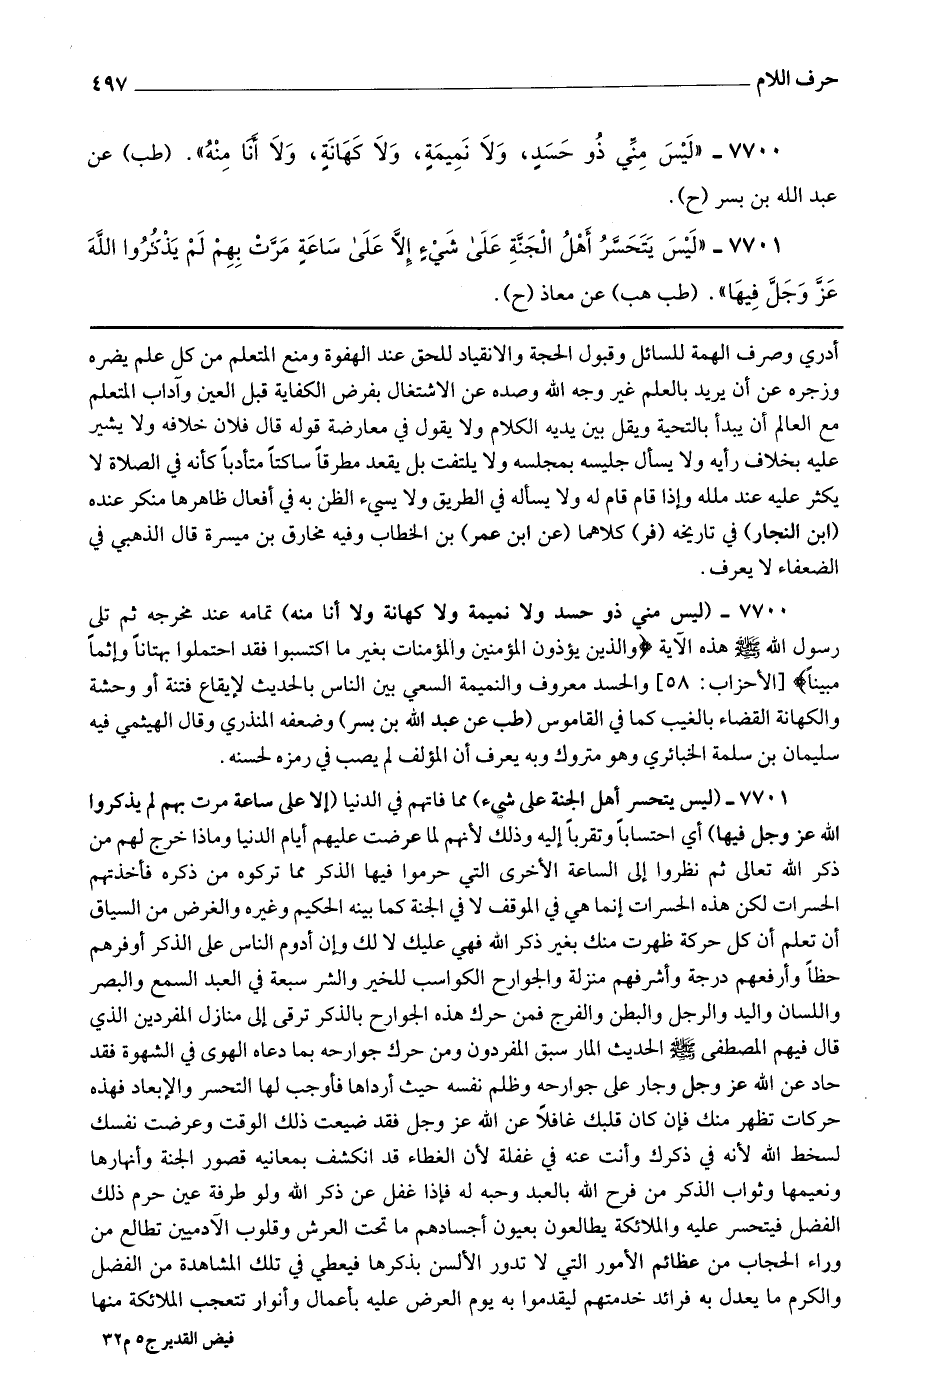 حرف اللام ٤٩٧
٧٧٠٠ ـ «لَيْسَ مِنِّي ذُو حَسَدٍ، وَلَا نَمِيمَةٍ، وَلَا كَهَانَةٍ، وَلَا أَنَا مِنْهُ». (طب) عن
عبد الله بن بسر (ح).
٧٧٠١ ـ «لَيْسَ يَتَحَسَّرُ أَهْلُ الْجَنَّةِ عَلَىٰ شَيْءٍ إِلَّا عَلَىٰ سَاعَةٍ مَرَّتْ بِهِمْ لَمْ يَذْكُرُوا اللَّهَ
عَزَّ وَجَلَّ فِيهَا». (طب هب) عن معاذ (ح).
أدري وصرف الهمة للسائل وقبول الحجة والانقياد للحق عند الهفوة ومنع المتعلم من كل علم يضره
وزجره عن أن يريد بالعلم غير وجه الله وصده عن الاشتغال بفرض الكفاية قبل العين وآداب المتعلم
مع العالم أن يبدأ بالتحية ويقل بين يديه الكلام ولا يقول في معارضة قوله قال فلان خلافه ولا يشير
عليه بخلاف رأيه ولا يسأل جليسه بمجلسه ولا يلتفت بل يقعد مطرقاً ساكتاً متأدباً كأنه في الصلاة لا
يكثر عليه عند ملله وإذا قام قام له ولا يسأله في الطريق ولا يسيء الظن به في أفعال ظاهرها منكر عنده
(ابن النجار) في تاريخه (فر) كلاهما (عن ابن عمر) بن الخطاب وفيه مخارق بن ميسرة قال الذهبي في
الضعفاء لا يعرف.
٧٧٠٠ ـ (ليس مني ذو حسد ولا نميمة ولا كهانة ولا أنا منه) تمامه عند مخرجه ثم تلى
رسول الله ﷺ هذه الآية ﴿والذين يؤذون المؤمنين والمؤمنات بغير ما اكتسبوا فقد احتملوا بهتاناً وإثماً
مبيناً﴾ [الأحزاب: ٥٨] والحسد معروف والنميمة السعي بين الناس بالحديث لإيقاع فتنة أو وحشة
والكهانة القضاء بالغيب كما في القاموس (طب عن عبد الله بن بسر) وضعفه المنذري وقال الهيثمي فيه
سليمان بن سلمة الخبائري وهو متروك وبه يعرف أن المؤلف لم يصب في رمزه لحسنه.
٧٧٠١ ـ (ليس يتحسر أهل الجنة على شيء) مما فاتهم في الدنيا (إلا على ساعة مرت بهم لم يذكروا
الله عز وجل فيها) أي احتساباً وتقرباً إليه وذلك لأنهم لما عرضت عليهم أيام الدنيا وماذا خرج لهم من
ذكر الله تعالى ثم نظروا إلى الساعة الأخرى التي حرموا فيها الذكر مما تركوه من ذكره فأخذتهم
الحسرات لكن هذه الحسرات إنما هي في الموقف لا في الجنة كما بينه الحكيم وغيره والغرض من السياق
أن تعلم أن كل حركة ظهرت منك بغير ذكر الله فهي عليك لا لك وإن أدوم الناس على الذكر أوفرهم
حظاً وأرفعهم درجة وأشرفهم منزلة والجوارح الكواسب للخير والشر سبعة في العبد السمع والبصر
واللسان واليد والرجل والبطن والفرج فمن حرك هذه الجوارح بالذكر ترقى إلى منازل المفردين الذي
قال فيهم المصطفى ﷺ الحديث المار سبق المفردون ومن حرك جوارحه بما دعاه الهوى في الشهوة فقد
حاد عن الله عز وجل وجار على جوارحه وظلم نفسه حيث أرداها فأوجب لها التحسر والإبعاد فهذه
حركات تظهر منك فإن كان قلبك غافلاً عن الله عز وجل فقد ضيعت ذلك الوقت وعرضت نفسك
لسخط الله لأنه في ذكرك وأنت عنه في غفلة لأن الغطاء قد انكشف بمعانيه قصور الجنة وأنهارها
ونعيمها وثواب الذكر من فرح الله بالعبد وحبه له فإذا غفل عن ذكر الله ولو طرفة عين حرم ذلك
الفضل فيتحسر عليه والملائكة يطالعون بعيون أجسادهم ما تحت العرش وقلوب الآدميين تطالع من
وراء الحجاب من عظائم الأمور التي لا تدور الألسن بذكرها فيعطي في تلك المشاهدة من الفضل
والكرم ما يعدل به فرائد خدمتهم ليقدموا به يوم العرض عليه بأعمال وأنوار تتعجب الملائكة منها
فيض القدير ج٥ م٣٢